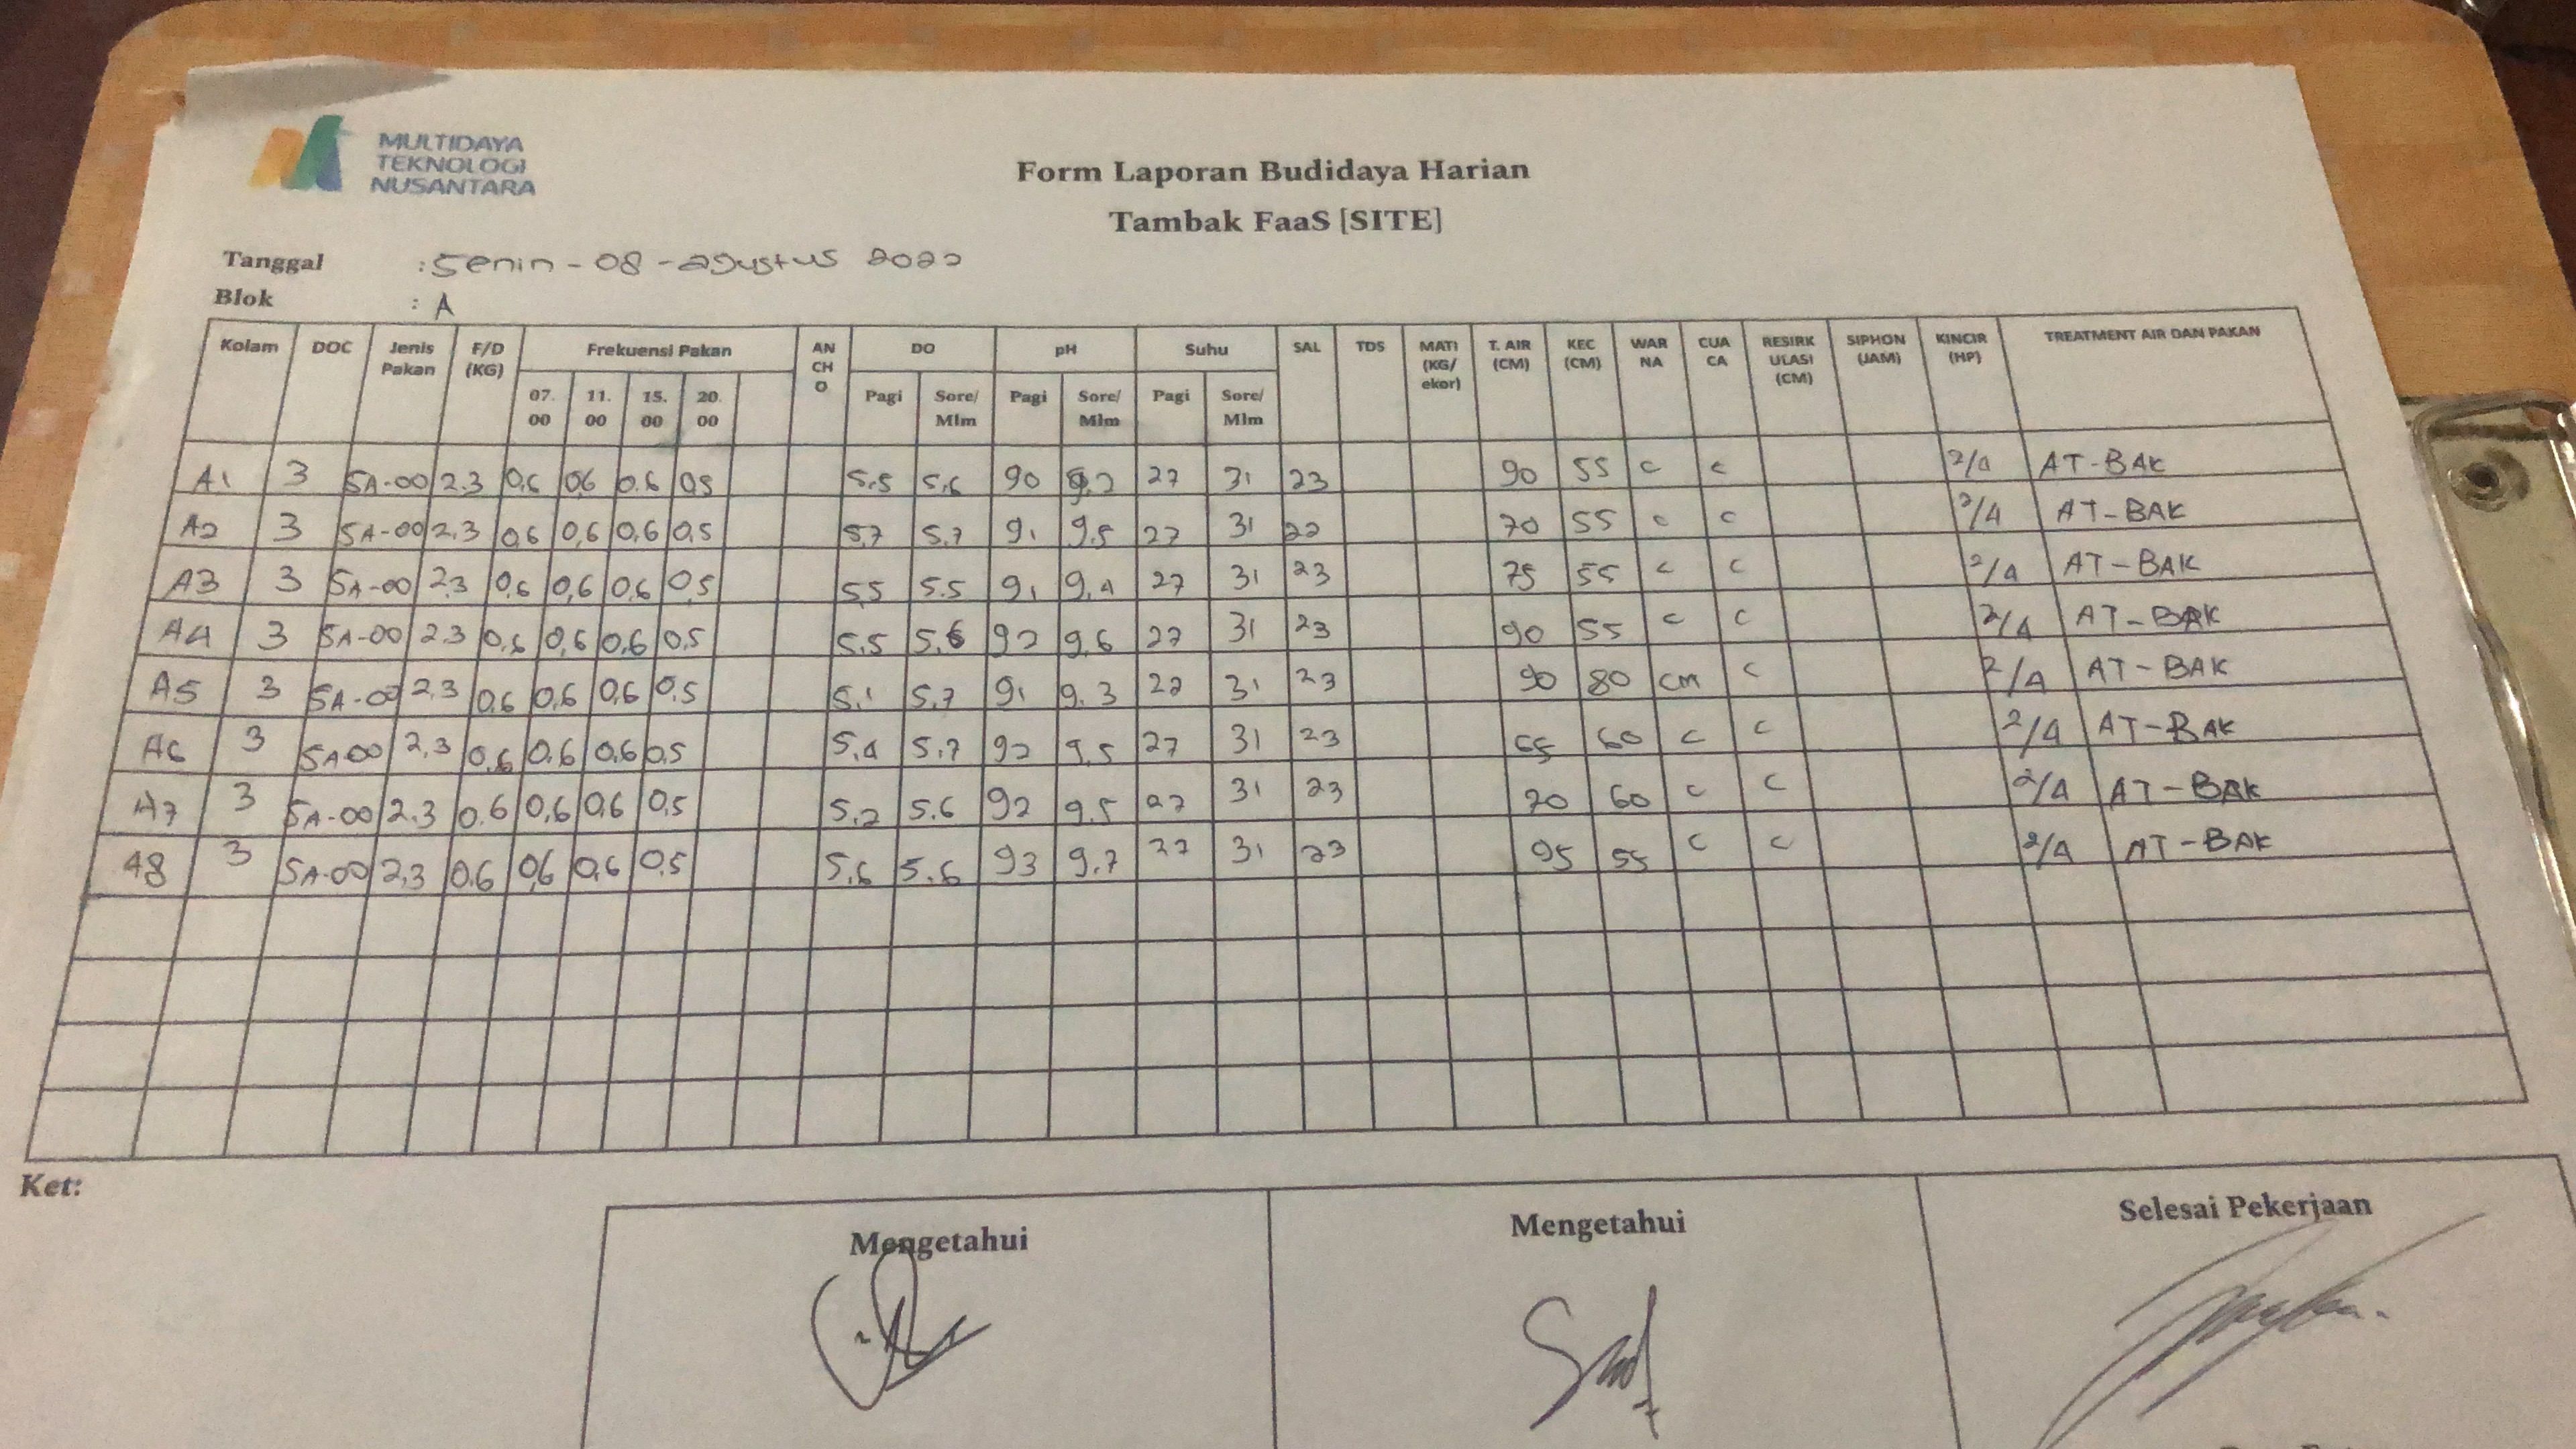 MULTIDAYA
TEKNOLOGI
NUSANTARA
Form Laporan Budidaya Harian
Tambak FaaS [SITE]
Tanggal : Senin - 08 - agustus 2022
Blok : A
Kolam DOC Jenis Pakan F/D (KG) Frekuensi Pakan AN CH O DO pH Suhu SAL TDS MATI (KG/ ekor) T. AIR (CM) KEC (CM) WAR NA CUA CA RESIRK ULASI (CM) SIPHON (JAM) KINCIR (HP) TREATMENT AIR DAN PAKAN
07. 00 11. 00 15. 00 20. 00 Pagi Sore/ Mlm Pagi Sore/ Mlm Pagi Sore/ Mlm
A1 3 SA-00 2.3 0,6 0,6 0.6 0,5 5.5 5.6 90 9.2 27 31 23 90 55 c c 2/4 AT-BAK
A2 3 SA-00 2.3 0,6 0,6 0,6 0,5 5.7 5.7 91 9.5 27 31 22 70 55 c c 2/4 AT-BAK
A3 3 SA-00 2.3 0,6 0,6 0,6 0,5 5.5 5.5 91 9.4 27 31 23 75 55 c c 2/4 AT-BAK
A4 3 SA-00 2.3 0,6 0,6 0,6 0,5 5.5 5.6 92 9.6 27 31 23 90 55 c c 2/4 AT-BAK
A5 3 SA-00 2.3 0,6 0,6 0,6 0,5 5.1 5.7 91 9.3 27 31 23 90 80 cm c 2/4 AT-BAK
A6 3 SA-00 2.3 0,6 0,6 0,6 0,5 5.4 5.7 92 9.5 27 31 23 65 60 c c 2/4 AT-BAK
A7 3 SA-00 2.3 0.6 0,6 0,6 0,5 5.2 5.6 92 9.5 27 31 23 70 60 c c 2/4 AT-BAK
A8 3 SA-00 2.3 0.6 0,6 0,6 0,5 5.6 5.6 93 9.7 27 31 23 95 55 c c 2/4 AT-BAK
Ket:
Mengetahui Mengetahui Selesai Pekerjaan